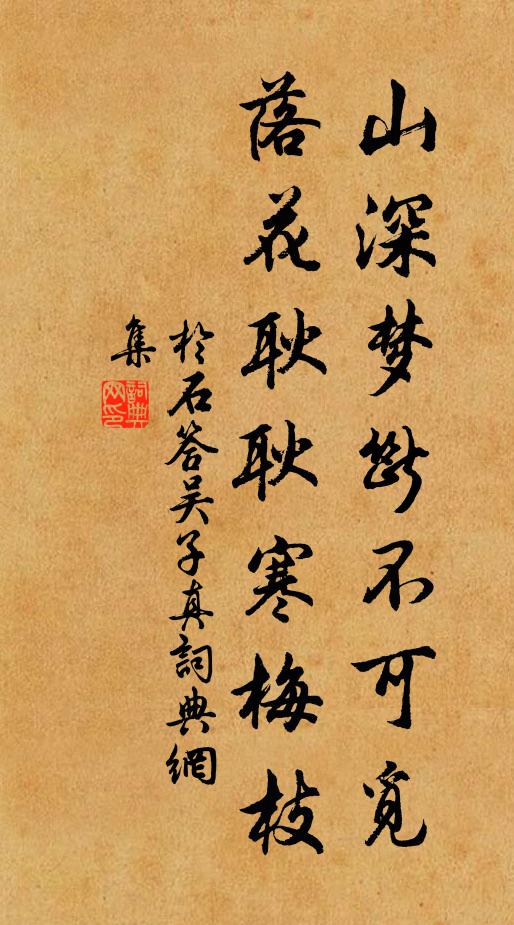 山深梦断不可觅
落花耿耿寒梅枝
於石答吴子真詞典網
集
詞典网印